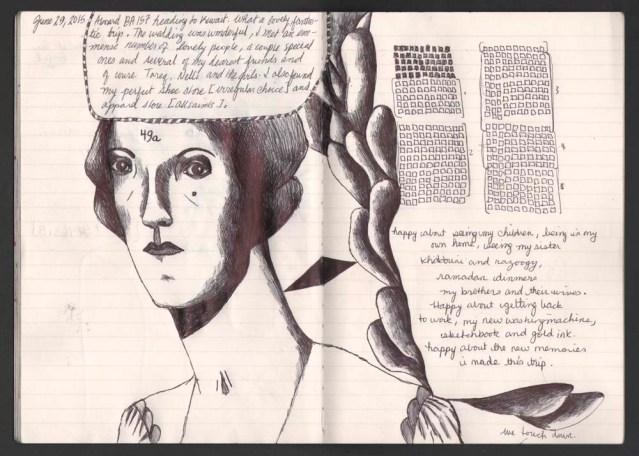 June 29, 2015
Aboard BA 157 heading to Kuwait. What a lovely fantas-
tic trip. The wedding was wonderful, I met an im-
mense number of lovely people, a couple special
ones and several of my dearest friends and
of course Tareq, Nelli and the girls. I also found
my perfect shoe store [irregular choice] and
apparel store [allsaints].
49a
1
2
3
4
5
happy about seeing my children, being in my
own home, seeing my sister
khobbini and razoogy,
ramadan dinners
my brothers and their wives.
Happy about getting back
to work, my new washing machine,
sketchbook and gold ink.
happy about the new memories
i made this trip.
we touch down.